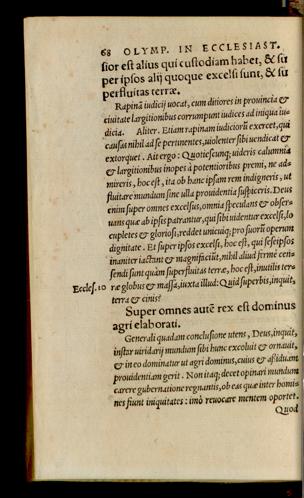 68 OLYMP. IN ECCLESIAST.
sior est alius qui custodiam habet, & su
per ipsos alij quoque excelsi sunt, & su
perfluitas terræ.
Rapinā iudicij uocat, cum ditiores in prouincia &
ciuitate largitionibus corrumpunt iudices ad iniqua iu-
dicia. Aliter. Etiam rapinam iudiciorū exercet, qui
causas nihil ad se pertinentes, uiolenter sibi uendicat &
extorquet. Ait ergo: Quotiescunq; uideris calumnia
& largitionibus inopes à potentioribus premi, ne ad-
mireris, hoc est, ita ob hanc ipsam rem indigneris, ut
fluitare mundum sine ulla prouidentia suspiceris. Deus
enim super omnes excelsus, omnia speculans & obser-
uans quæ ab ipsis patrantur, qui sibi uidentur excelsi, lo
cupletes & gloriosi, reddet unicuiq; pro suorū operum
dignitate. Et super ipsos excelsi, hoc est, qui seseipsos
inaniter iactant & magnificāt, nihil aliud firmè cen-
sendi sunt quàm superfluitas terræ, hoc est, inutilis ter-
Eccles. 10 ræ globus & massa, iuxta illud: Quid superbis, inquit,
terra & cinis?
Super omnes autē rex est dominus
agri elaborati.
Generali quadam conclusione utens, Deus, inquit,
instar uiridarij mundum sibi hunc excoluit & ornauit,
& in eo dominatur ut agri dominus, cuius & assiduam
prouidentiam gerit. Non itaq; decet opinari mundum
carere gubernatione regnantis, ob eas quæ inter homi-
nes fiunt iniquitates: imò reuocare mentem oportet.
Quod